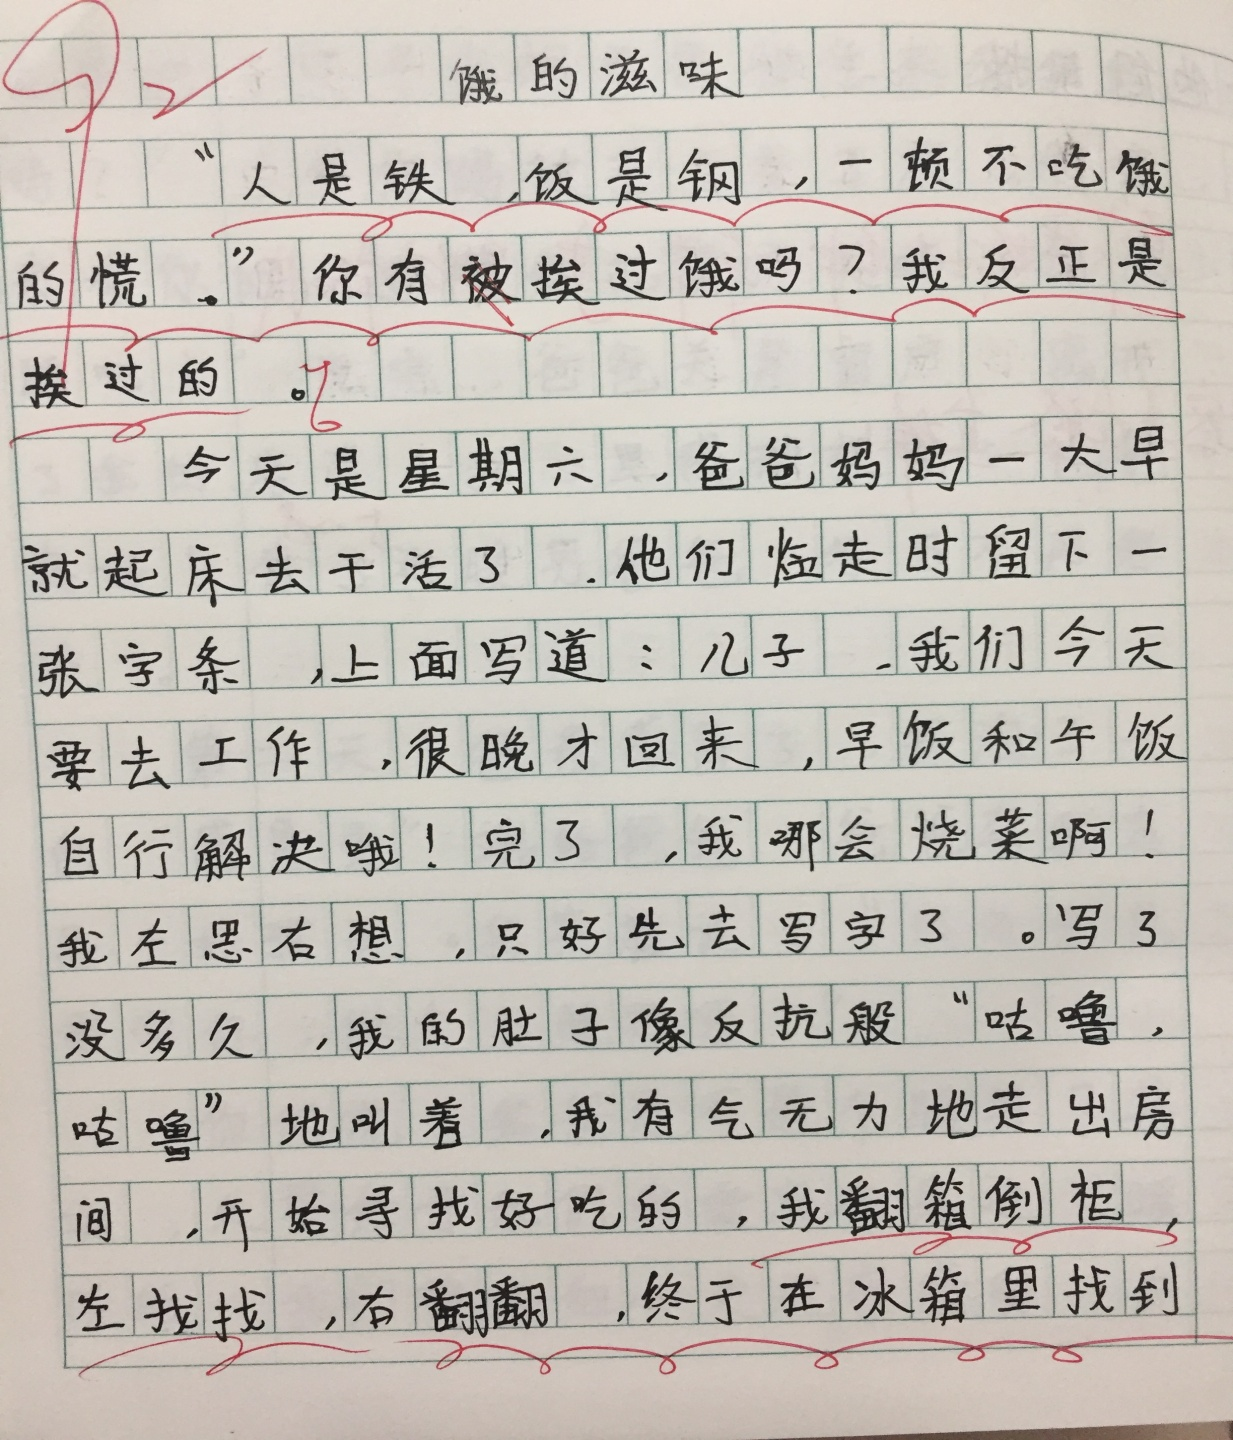 92
饿的滋味
“人是铁,饭是钢,一顿不吃饿
的慌。”你有被挨过饿吗?我反正是
挨过的。
今天是星期六,爸爸妈妈一大早
就起床去干活了.他们临走时留下一
张字条,上面写道:儿子,我们今天
要去工作,很晚才回来,早饭和午饭
自行解决哦!完了,我哪会烧菜啊!
我左思右想,只好先去写字了。写了
没多久,我的肚子像反抗般“咕噜,
咕噜”地叫着,我有气无力地走出房
间,开始寻找好吃的,我翻箱倒柜,
左找找,右翻翻,终于在冰箱里找到